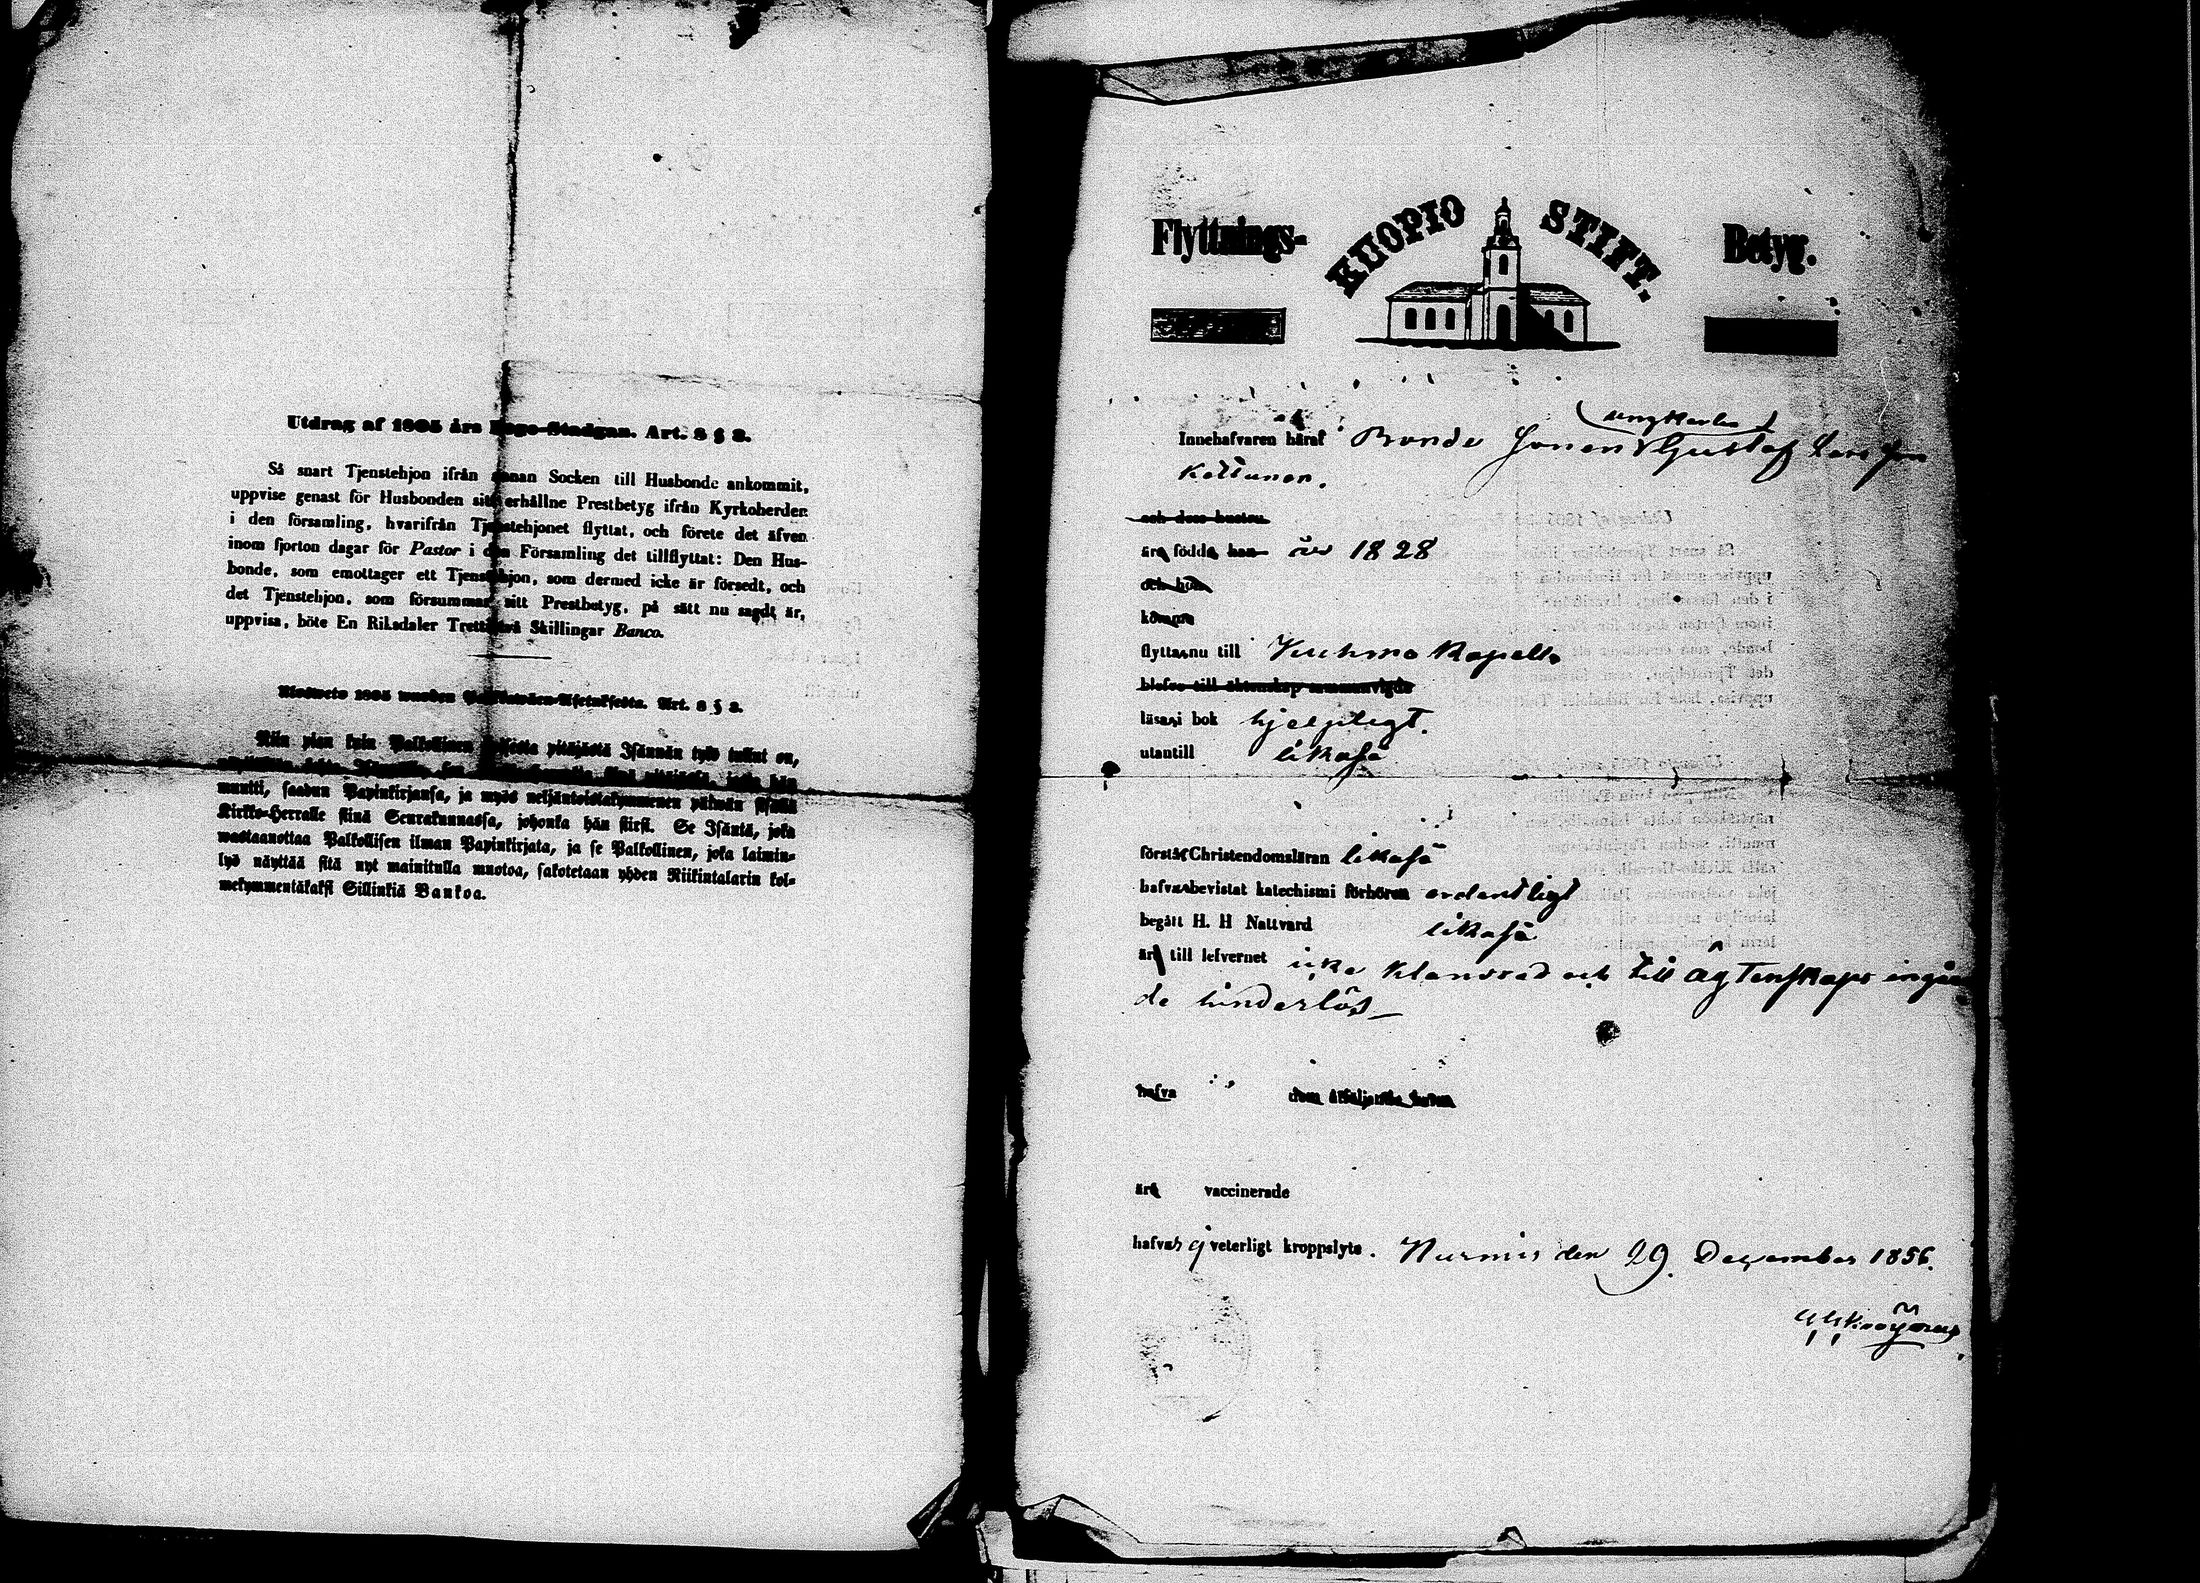 Utdrag af 1805 års Lego-Stadgan. Art. 8 § 8.
Så snart Tjenstehjon ifrån annan Socken till Husbonde ankommit,
uppvise genast för Husbonden sitt erhållne Prestbetyg ifrån Kyrkoherden
i den församling, hvarifrån Tjenstehjonet flyttat, och förete det äfven
inom fjorton dagar för Pastor i den Församling det tillflyttat: Den Hus-
bonde, som emottager ett Tjenstehjon, som dermed icke är försedt, och
det Tjenstehjon, som försummar sitt Prestbetyg, på sätt nu sagdt är,
uppvisa, böte En Riksdaler Trettiotvå Skillingar Banco.
1805 wuoden Art. 8 § 8.
Niin pian kuin Palkollinen pitäjästä Isännän työ tullut on,
muutti, saadun Papinkirjansa, ja myös neljäntoistakymmenen päiwän sisällä
Kirkko-Herralle siinä Seurakunnassa, johonka hän siirsi. Se Isäntä, joka
wastaanottaa Palkollisen ilman Papinkirjata, ja se Palkollinen, joka laimin-
lyö näyttää sitä nyt mainitulla muotoa, sakotetaan yhden Riikintalarin kol-
mekymmentäkaksi Sillinkiä Bankoa.
Flyttnings- KUOPIO STIFT. Betyg.
ungkarlen
Innehafvaren häraf Bonde Sonen Gustaf Lars Son
Kettunen.
och dess hustru
äro födde, han år 1828
och hon
komna
flytta nu till Kuhmo Kapell
blefvo till äktenskap sammanvigde
läsa i bok hjelpligt.
utantill likaså
förstå Christendomsläran likaså
hafva bevistat katechismi förhören ordentligt
begått H. H Nattvard likaså
är till lefvernet icke klandrad och till ägtenskaps ingåen
de hinderlös
hafva dem åtföljande barn
äro vaccinerade
hafva veterligt kroppslyte. Nurmis den 29. December 1856.